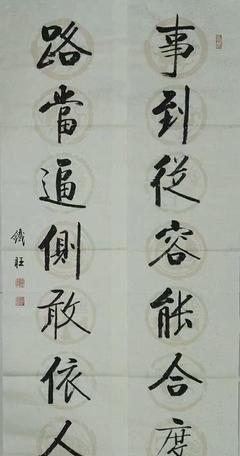 事到從容能合度
路當逼側敢依人
鐵旺